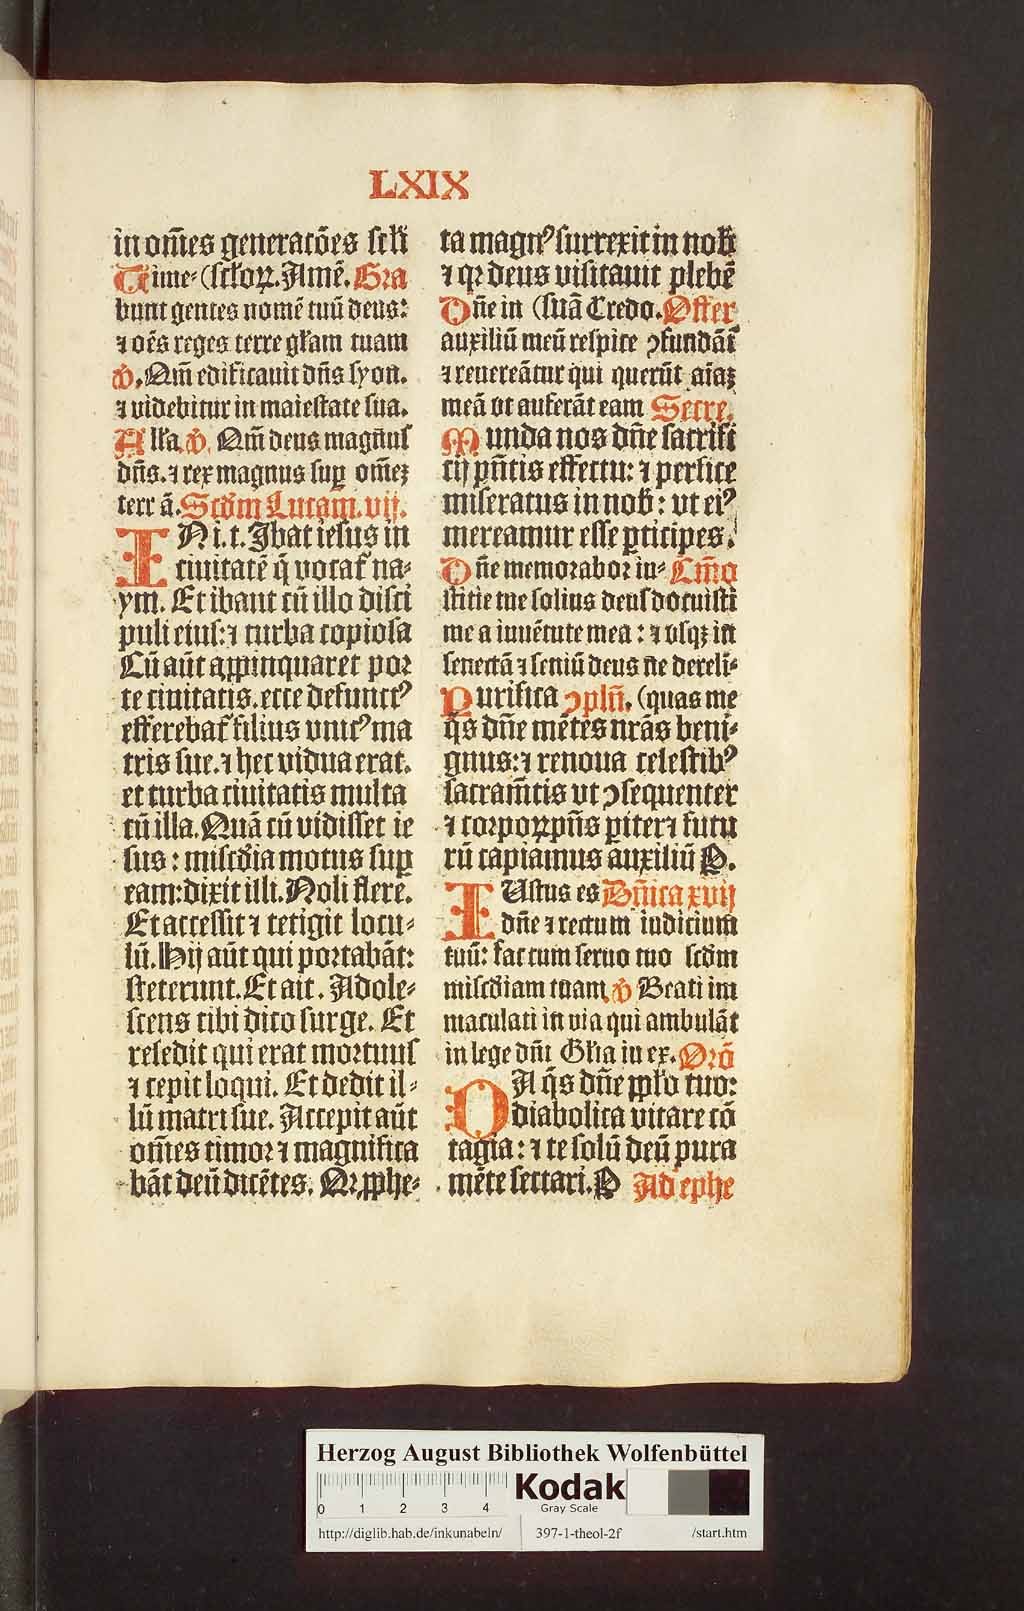 LXIX
in om̄es generatōes scłi
Time-(scłoꝝ. Amē. Gra
bunt gentes nomē tuū deus:
⁊ oēs reges terre głam tuam
℣. Qm̄ edificauit dn̄s syon.
⁊ videbitur in maiestate sua.
Alła. ℣. Qm̄ deus magnus
dn̄s. ⁊ rex magnus suꝑ om̄eꝫ
terr ā. Scd̄m Lucam. vij.
IN i. t. Ibat iesus in
ciuitatē q̄ vocat᷑ na-
ym. Et ibant cū illo disci
puli eius: ⁊ turba copiosa
Cū aūt appinquaret por
te ciuitatis. ecce defunctꝰ
efferebat᷑ filius vnicꝰ ma
tris sue. ⁊ hec vidua erat.
et turba ciuitatis multa
cū illa. Quā cū vidisset ie
sus: misc̄dia motus suꝑ
eam: dixit illi. Noli flere.
Et accessit ⁊ tetigit locu-
lū. Hij aūt qui portabāt:
steterunt. Et ait. Adole-
scens tibi dico surge. Et
resedit qui erat mortuus
⁊ cepit loqui. Et dedit il-
lū matri sue. Accepit aūt
om̄es timor ⁊ magnifica
bāt deū dicētes. Qꝛ ꝓphe-
ta magnꝰ surrexit in nob̄
⁊ qꝛ deus visitauit plebē
Dn̄e in (suā Credo. Offer
auxiliū meū respice ꝯfundāt᷑
⁊ reuereātur qui querūt aīaꝫ
meā vt auferāt eam Secre.
Munda nos dn̄e sacrifi
cij pn̄tis effectu: ⁊ perfice
miseratus in nob̄: vt eiꝰ
mereamur esse ꝑticipes.
Dn̄e memorabor iu- Cm̄o
stitie tue solius deus docuisti
me a iuuētute mea: ⁊ vsqꝫ in
senectā ⁊ seniū deus ne dereli-
Purifica ꝯpln̄. (quas me
q̄s dn̄e mētes nrās beni-
gnus: ⁊ renoua celestibꝰ
sacram̄tis vt ꝯsequenter
⁊ corpoꝝ pn̄s ꝑiter ⁊ futu
rū capiamus auxiliū P.
IUstus es Dn̄ica xvij
dn̄e ⁊ rectum iudicium
tuū: fac cum seruo tuo scd̄m
misc̄diam tuam ℣ Beati im
maculati in via qui ambulāt
in lege dn̄i Głia in ex. Orō
DA q̄s dn̄e ppło tuo:
diabolica vitare cō
tagia: ⁊ te solū deū pura
mēte sectari. P Ad ephe
Herzog August Bibliothek Wolfenbüttel
0 1 2 3 4
Kodak
Gray Scale
http://diglib.hab.de/inkunabeln/ 397-1-theol-2f /start.htm